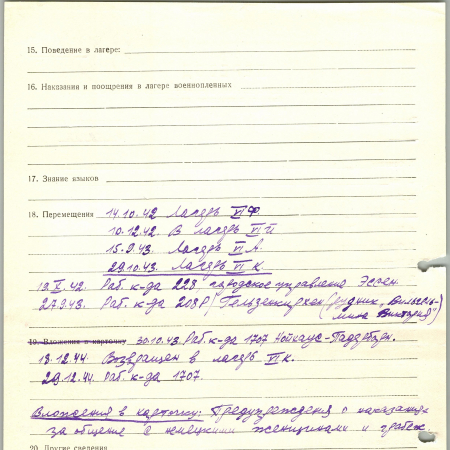 15. Поведение в лагере:
16. Наказания и поощрения в лагере военнопленных
17. Знание языков
18. Перемещения 14.10.42 Лагерь VI Ф.
10.12.42. В лагерь VI
15.9.43. Лагерь VI А.
29.10.43. Лагерь VI К.
13. X. 42. Раб. к-да 223 городское управление Эссен.
27.9.43. Раб. к-да 208Р/Гельзенкирхен (рудник, Вильгель-
мина Виктория")
19. Вложения в карточку 30.10.43. Раб. к-да 1707
18.12.44. Возвращен в лагерь VI К.
29.12.44. Раб. к-да 1707.
Вложения в карточку: Предупреждения о наказаниях
за общение с немецкими женщинами и грабеж
20. Другие сведения